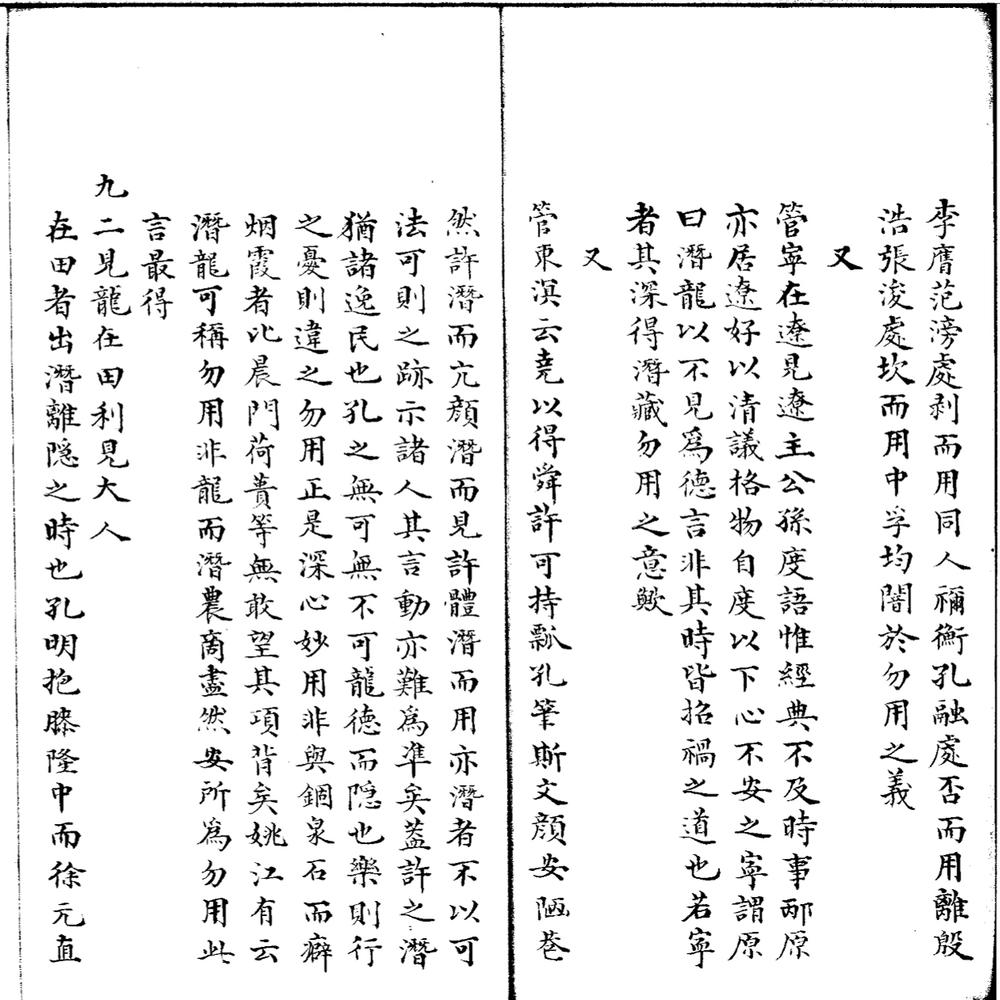 李膺范滂處剥而用同人禰衡孔融處否而用離殷
浩張浚處坎而用中孚均闇於勿用之義
又
管寧在遼見遼主公孫度語惟經典不及時事邴原
亦居遼好以清議格物自度以下心不安之寧謂原
曰潛龍以不見爲德言非其時皆招禍之道也若寧
者其深得潛藏勿用之意歟
又
管東溟云堯以得舜許可持瓢孔筆斯文顔安陋巷
然許潛而亢顔潛而見許體潛而用亦潛者不以可
法可則之跡示諸人其言動亦難爲凖矣葢許之潛
猶諸逸民也孔之無可無不可龍德而隱也樂則行
之憂則違之勿用正是深心妙用非與錮泉石而癖
烟霞者比晨門荷蕢等無敢望其項背矣姚江有云
潛龍可稱勿用非龍而潛農啇盡然安所爲勿用此
言最得
九二見龍在田利見大人
在田者出潛離隱之時也孔明抱膝隆中而徐元直